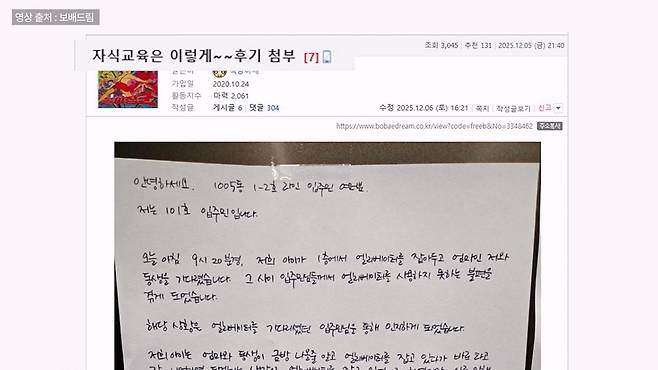 영상 출처 : 보배드림
자식교육은 이렇게~~후기 첨부 [7]
조회 3,045 | 추천 131 | 2025.12.05 (금) 21:40
가입일 2020.10.24
활동지수 마력 2,061
작성글 게시글 6 | 댓글 304
수정 2025.12.06 (토) 16:21 | 쪽지 | 작성글보기 | 신고
https://www.bobaedream.co.kr/view?code=freeb&No=3348462 주소복사
안녕하세요. 1005동 1-2호 라인 입주민 여러분.
저는 101호 입주민입니다.
오늘 아침 9시 20분경, 저희 아이가 1층에서 엘리베이터를 잡아두고 엄마인 저와
동생을 기다렸습니다. 그 사이 입주민님들께서 엘리베이터를 사용하지 못하는 불편을
겪게 되었습니다.
해당 상황은 엘리베이터를 기다리셨던 입주민님을 통해 인지하게 되었습니다.
저희 아이는 엄마와 동생이 금방 나올줄 알고 엘리베이터를 잡고 있다가 바로 타려고